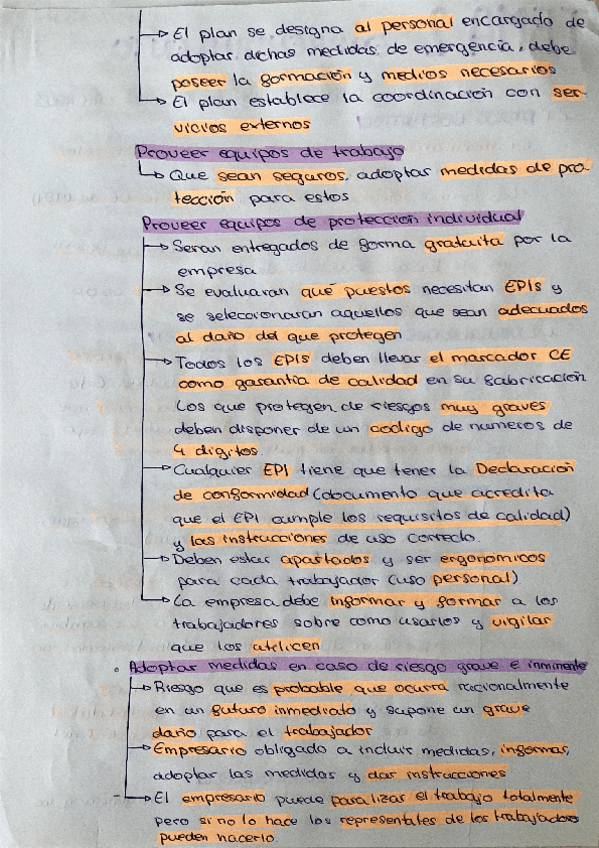 El plan se designa al personal encargado de
adoptar dichas medidas de emergencia, debe
poseer la formación y medios necesarios
El plan establece la coordinación con ser-
vicios externos
Proveer equipos de trabajo
Que sean seguros, adoptar medidas de pro-
tección para estos
Proveer equipos de protección individual
Seran entregados de forma gratuita por la
empresa
Se evaluaran qué puestos necesitan EPIs y
se seleccionaran aquellos que sean adecuados
al daño del que protegen
Todos los EPIs deben llevar el marcador CE
como garantia de calidad en su fabricación
Los que protegen de riesgos muy graves
deben disponer de un codigo de numeros de
4 digitos.
Cualquier EPI tiene que tener la Declaración
de conformidad (documento que acredita
que el EPI cumple los requisitos de calidad)
y las instrucciones de uso correcto.
Deben estar apartados y ser ergonomicos
para cada trabajador (uso personal)
La empresa debe informar y formar a los
trabajadores sobre como usarlos y vigilar
que los utilicen
Adoptar medidas en caso de riesgo grave e inminente
Riesgo que es probable que ocurra racionalmente
en un futuro inmediato y supone un grave
daño para el trabajador
Empresario obligado a incluir medidas, informar,
adoptar las medidas y dar instrucciones
El empresario puede paralizar el trabajo totalmente
pero si no lo hace los representates de los trabajadores
pueden hacerlo.